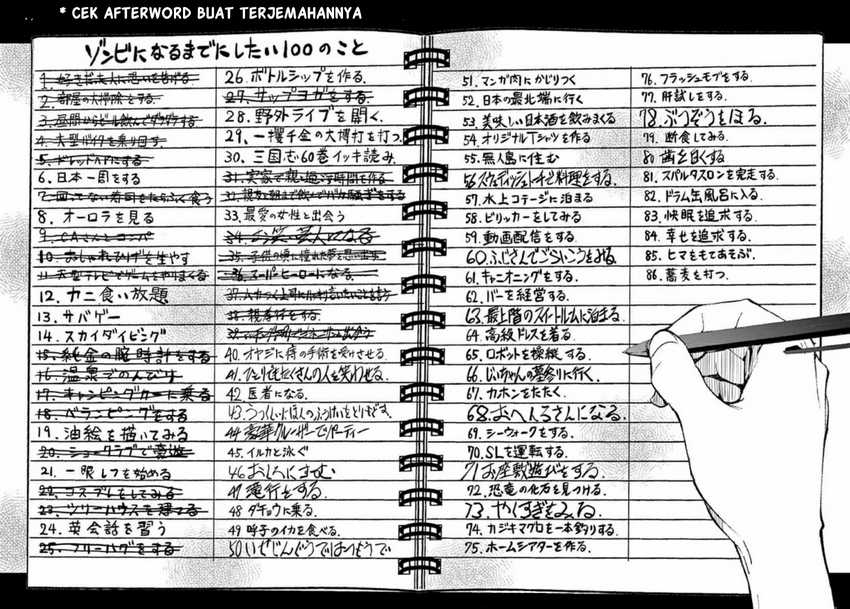 * CEK AFTERWORD BUAT TERJEMAHANNYA
ゾンビになるまでにしたい100のこと
1. 好きだった人に思いを告げる
2. 部屋の大掃除をする
3. 昼間からビール飲んでダラダラする
4. 大型バイクを乗り回す
5. ドレッドヘアにする
6. 日本一周をする
7. 回ってない寿司をたらふく食う
8. オーロラを見る
9. CAさんとコンパ
10. おしゃれひげを生やす
11. 大型テレビでゲームをやりまくる
12. カニ食い放題
13. サバゲー
14. スカイダイビング
15. 純金の腕時計をする
16. 温泉でのんびり
17. キャンピングカーに乗る
18. ベランピングをする
19. 油絵を描いてみる
20. ショークラブで豪遊
21. 一眼レフを始める
22. コスプレをしてみる
23. ツリーハウスを建てる
24. 英会話を習う
25. フリーハグをする
26. ボトルシップを作る.
27. サップヨガをする.
28. 野外ライブを開く.
29. 一攫千金の大博打を打つ.
30. 三国志60巻イッキ読み
31. 実家で親と過ごす時間を作る
32. 親友と朝まで飲んでバカ騒ぎをする
33. 最愛の女性と出会う
34. お笑い芸人になる
35. 子供の頃に憧れた夢を思い出す
36. スーパーヒーローになる.
37. ムカつく上司に言いたいことを言う
38. 親孝行をする.
39.
40. オヤジに痔の手術を受けさせる.
41. ひとりでもたくさんの人を笑わせる.
42. 医者になる.
43. うつくしいにほんのふうけいをとりもどす.
44. 豪華クルーザーでパーティー
45. イルカと泳ぐ
46 おしろにすむ
47 滝行をする.
48 ダチョウに乗る.
49 呼子のイカを食べる.
50 いせじんぐうではつもうで
51. マンガ肉にかじりつく
52. 日本の最北端に行く
53 美味しい日本酒を飲みまくる
54 オリジナルTシャツを作る
55. 無人島に住む
56 料理をする.
57. 水上コテージに泊まる
58. ビリッカーをしてみる
59. 動画配信をする.
60. ふじさんでごらいこうをみる
61. キャニオニングをする.
62. バーを経営する.
63. 最上階のスイートルムに泊まる.
64. 高級ドレスを着る.
65. ロボットを操縦する.
66. じいちゃんの墓参りに行く.
67. カホンをたたく.
68. おへんろさんになる.
69. シーウォークをする.
70. SLを運転する.
71 お座敷遊びをする.
72. 恐竜の化石を見つける.
73. やくすぎをみる.
74. カジキマグロを一本釣りする.
75. ホームシアターを作る.
76. フラッシュモブをする.
77. 肝試しをする.
78. ぶつぞうをほる.
79. 断食してみる.
80 歯を白くする
81. スパルタスロンを完走する.
82. ドラム缶風呂に入る.
83. 快眠を追求する.
84. 幸せを追求する.
85. ヒマをもてあそぶ.
86. 蕎麦を打つ.